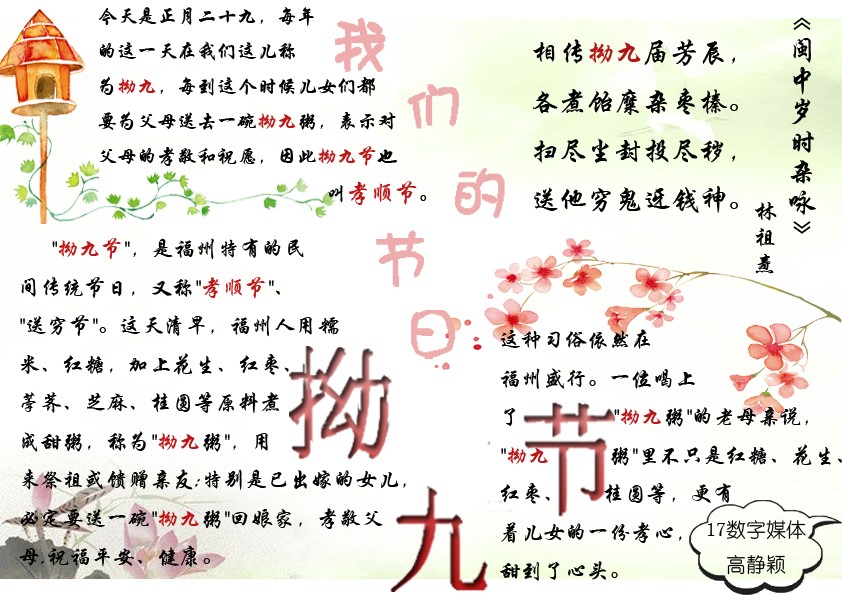 今天是正月二十九，每年
的这一天在我们这儿称
为拗九，每到这个时候儿女们都
要为父母送去一碗拗九粥，表示对
父母的孝敬和祝愿，因此拗九节也
叫孝顺节。
我们的节日
相传拗九届芳辰，
各煮饴糜杂枣榛。
扫尽尘封投尽秽，
送他穷鬼迓钱神。
《闽中岁时杂咏》
林祖焘
"拗九节"，是福州特有的民
间传统节日，又称"孝顺节"、
"送穷节"。这天清早，福州人用糯
米、红糖，加上花生、红枣、
荸荠、芝麻、桂圆等原料煮
成甜粥，称为"拗九粥"，用
来祭祖或馈赠亲友;特别是已出嫁的女儿，
必定要送一碗"拗九粥"回娘家，孝敬父
母,祝福平安、健康。
拗九节
这种习俗依然在
福州盛行。一位喝上
了"拗九粥"的老母亲说，
"拗九粥"里不只是红糖、花生、
红枣、桂圆等，更有
着儿女的一份孝心，
甜到了心头。
17数字媒体
高静颖